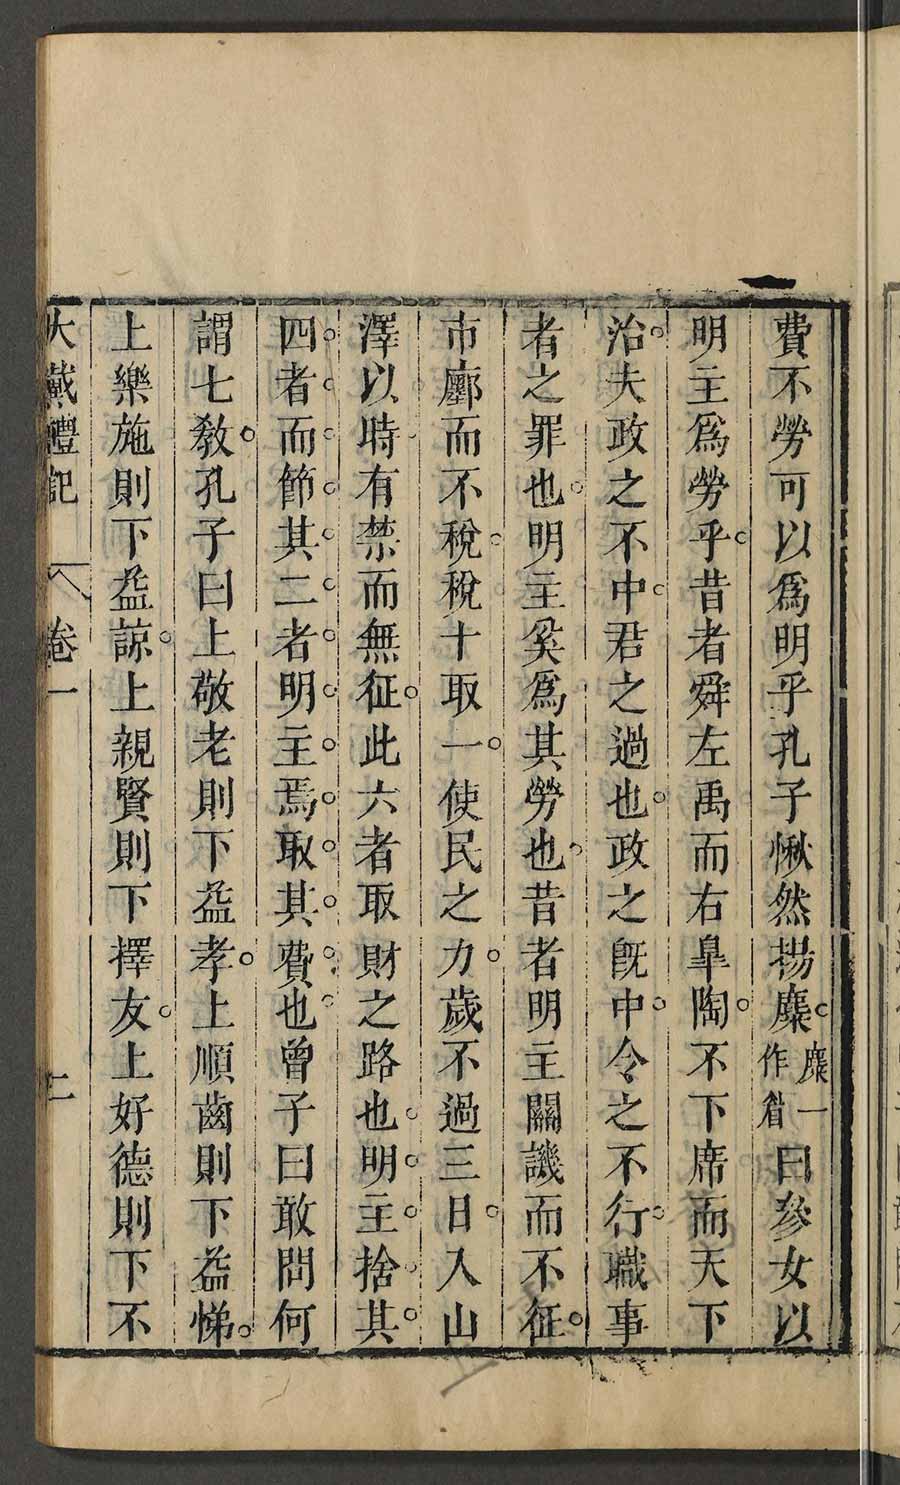 費不勞可以爲明乎孔子愀然揚麋麋一作眉曰參女以
明主爲勞乎昔者舜左禹而右臯陶不下席而天下
治夫政之不中君之過也政之既中令之不行職事
者之罪也明主奚爲其勞也昔者明主關譏而不征
市廛而不稅稅十取一使民之力歲不過三日入山
澤以時有禁而無征此六者取財之路也明主捨其
四者而節其二者明主焉取其費也曾子曰敢問何
謂七教孔子曰上敬老則下益孝上順齒則下益悌
上樂施則下益諒上親賢則下擇友上好德則下不
大戴禮記 卷一 二